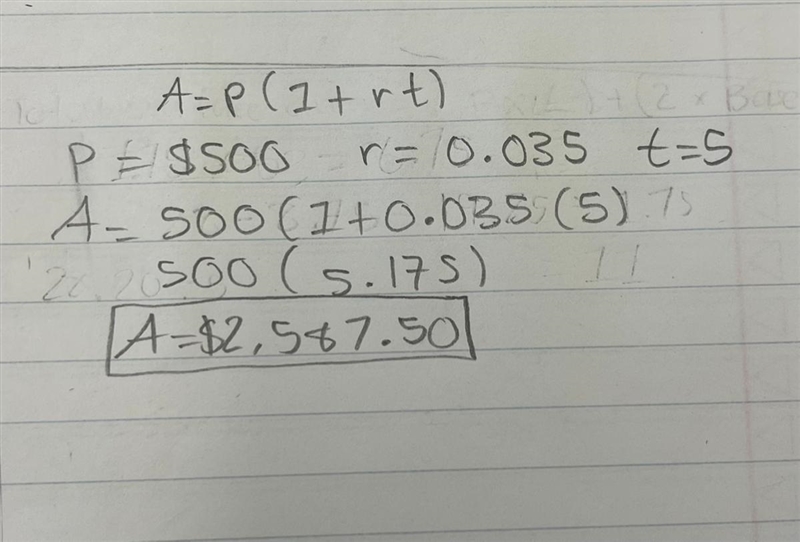 A = P(1 + rt)
P = $500 r = 0.035 t = 5
A = 500(1 + 0.035(5)
500(5.175)
A = $2,587.50